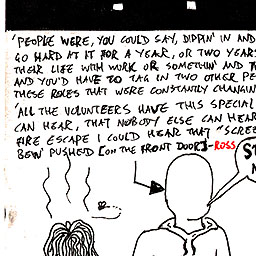 'PEOPLE WERE, YOU COULD SAY, DIPPIN' IN AND
GO HARD AT IT FOR A YEAR, OR TWO YEARS
THEIR LIFE WITH WORK OR SOMETHIN' AND
AND YOU'D HAVE TO TAG IN TWO OTHER PE
THESE ROLES THAT WERE CONSTANTLY CHANGIN
'ALL THE VOLUNTEERS HAVE THIS SPECIAL
CAN HEAR, THAT NOBODY ELSE CAN HEAR
FIRE ESCAPE I COULD HEAR THAT "SCREE
BEIN' PUSHED [ON THE FRONT DOOR]'-ROSS